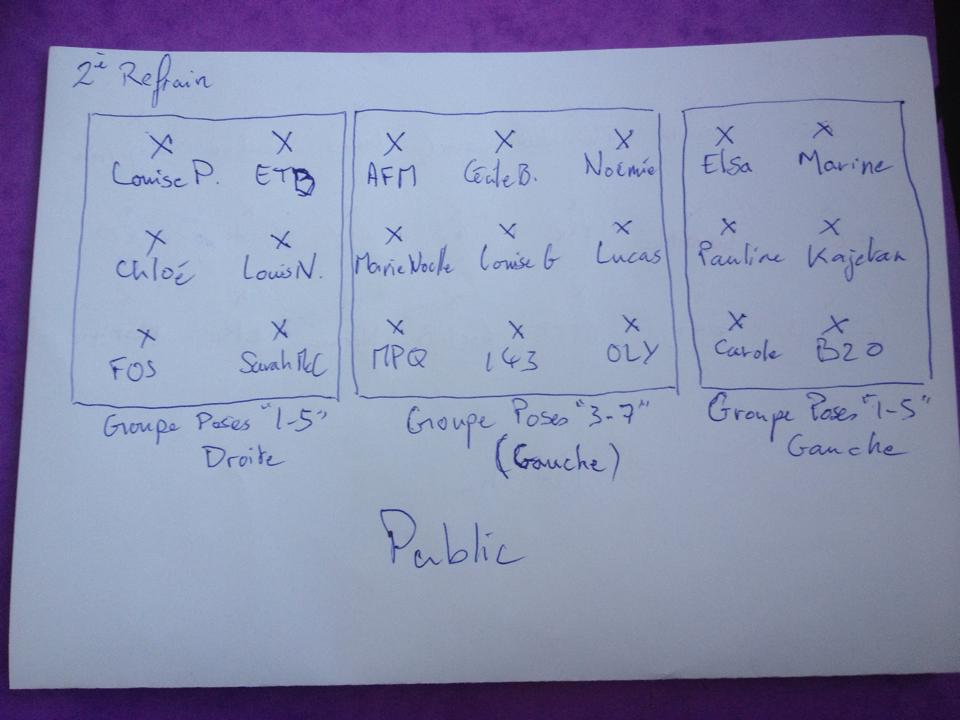 2è Refrain
X X X X X X X
Louise P. ETB AFM Cécile B. Noémie Elsa Marine
X X X X X X X
Chloé Louis N. Marie Noelle Louise G Lucas Pauline Kajetan
X X X X X X X
FOS Sarah McC MPQ 143 OLY Carole B20
Groupe Poses "1-5" Groupe Poses "3-7" Groupe Poses "1-5"
Droite (Gauche) Gauche
Public